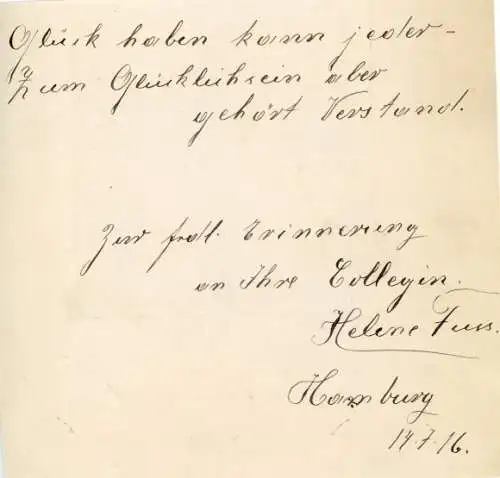 Glück haben kann jeder –
Zum Glücklichsein aber
gehört Verstand.
Zur frdl. Erinnerung
an Ihre Collegin.
Helene Fuss.
Hamburg
14.7.16.